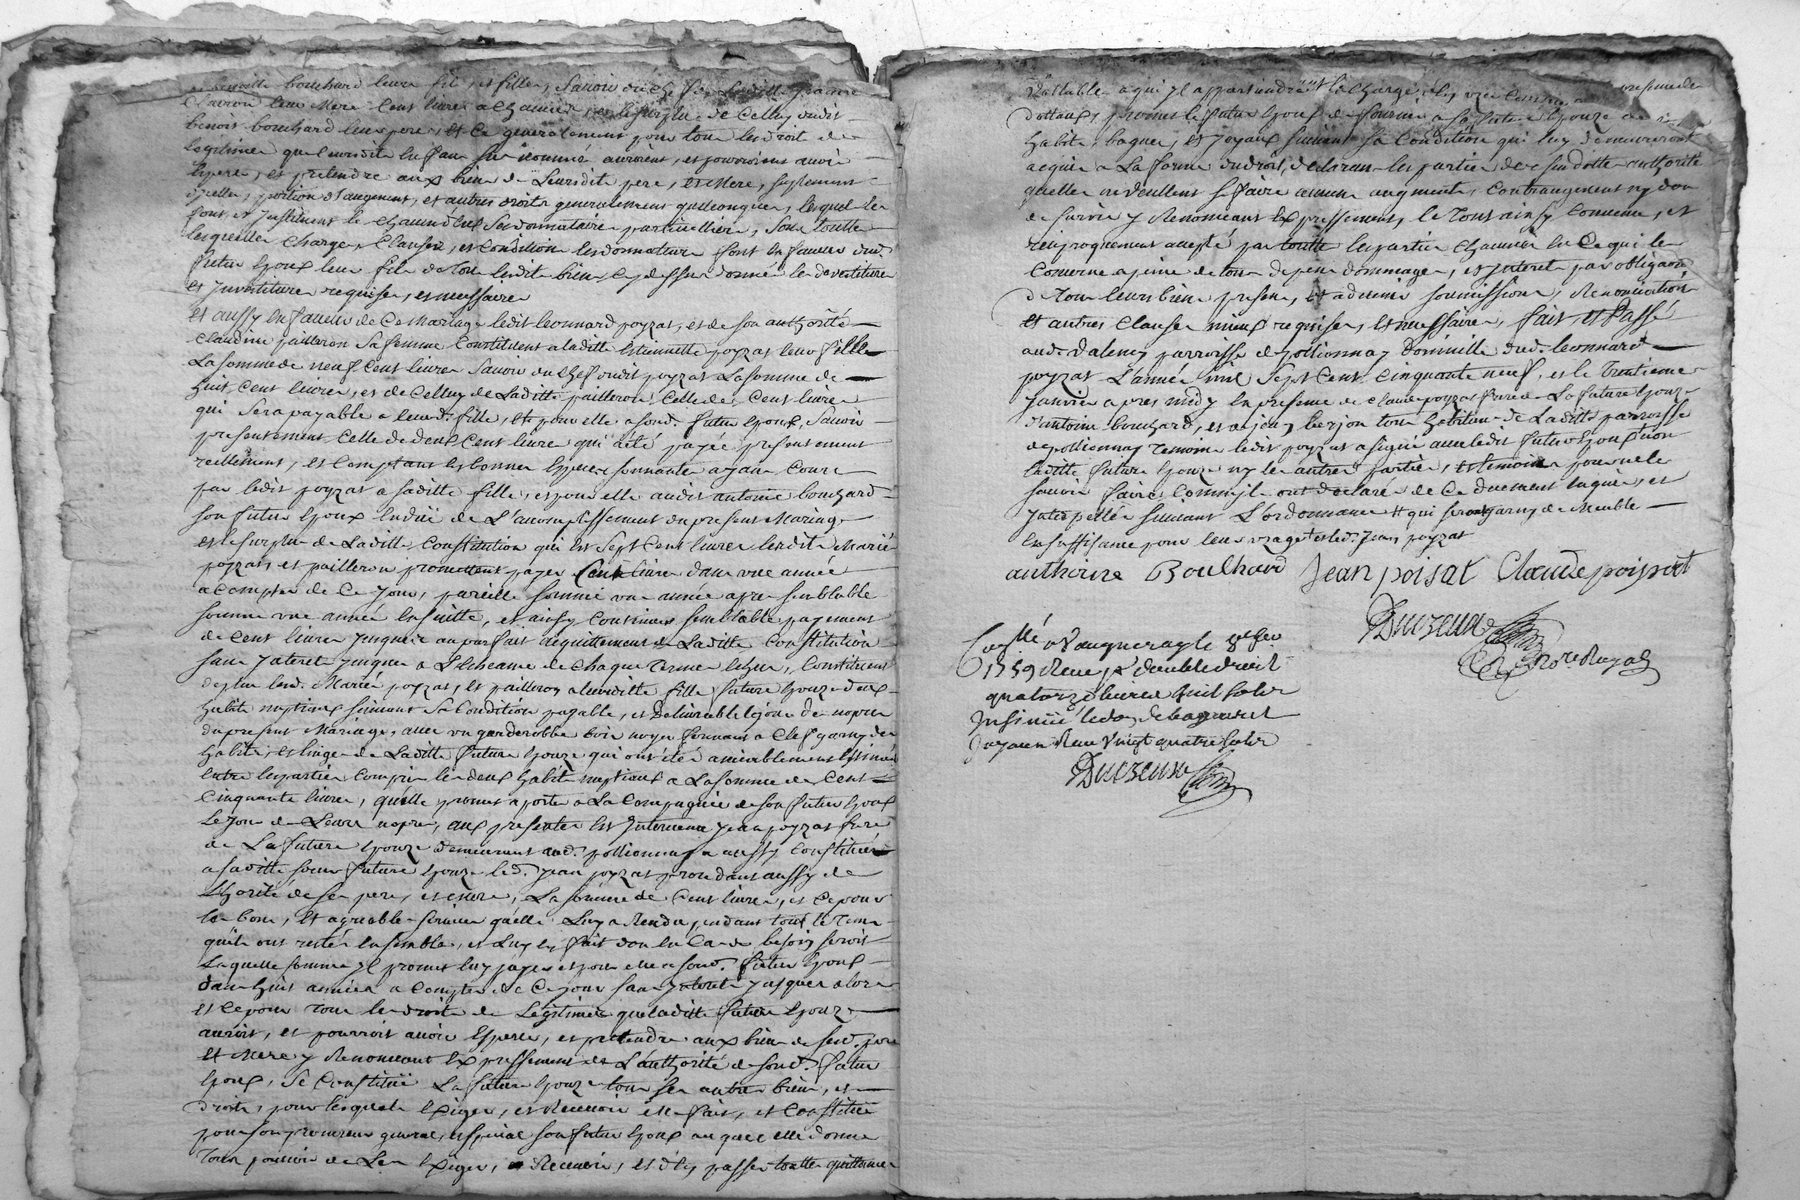 benoitte bouchard leurs fils, et filles, savoir du chef de laditte jeanne
Clavron leur Mere Cent livres a Chacun et le surplus de Celluy dudit
benoit bouchard leur pere, et Ce generalement pour tous les droits de
legitimes que leursdits Enfans sus nommés auroient, et pourroient avoir
Esperer, et pretendre aux biens de Leursdits pere, et Mere, suplement
d'icelles, portion d'augement, et autres droits generalement quelconques, lesquels les
font, et Jnstituent le Chacun d'eux Ses donnataires particulliers, Sous toutes
lesquelles Charges, Clauses, et Conditions les donnateurs font En faveur dud.
futur Epoux leur fils de tous lesdits biens Cy dessus donnés les devestitures
et Jnvestitures requises, et necessaires
Et aussy En faveur de Ce Mariage ledit leonnard poyzat, et de son authorité
Claudine pailleron Sa femme Constituent a laditte Estiennette poyzat leur fille
La somme de neuf Cent livres Savoir du Chef dudit poyzat La somme de
huit Cent livres, et de Celluy de Laditte pailleron Celle de Cent livres
qui Sera payable a leurd. fille, Et pour elle a sond. futur Epoux, Savoir
presentement Celle de deux Cent livres qui a été payée presentement
reellement, et Comptant En bonnes Especes sonnantes ayant Cours
par ledit poyzat a saditte fille, et pour elle audit antoine bouchard
son futur Epoux En duë de L'accomplissement du present Mariage
et le surplus de Laditte Constitution qui Est Sept Cent livres lesdits Mariés
poyzat, et pailleron promettent payer Cent livres dans une année
a Compter de Ce Jour, pareille somme une année apres semblable
somme une année Ensuitte, et ainsy Continuer semblable payement
de Cent livres Jusques au parfait acquittement de Laditte Constitution
sans Jnteret Jusques a L'Echeance de Chaque Terme Echus, Constituent
de plus lesd. Mariés poyzat, et pailleron a leurditte fille future Epouze deux
habits nuptiaux suivant Sa Condition payable, et Delivrable le jour des nopces
du present Mariage, avec un garderobbe bois noyer fermant a Clef garny des
habits, et linges de Laditte future Epouze qui ont été amiablement Estimés
Entre les parties Compris les deux habits nuptiaux a La somme de Cent
Cinquante livres, qu'elle promet aporter a La Compagnie de son futur Epoux
Le jour de Leurs nopces, aux presentes Est Jntervenu Jean poyzat frere
de La future Epouze demeurant aud. pollionnay a aussy Constitué
a saditte soeur future Epouze led. Jean poyzat procedant aussy de
l'authorité de ses pere, et mere, La somme de Cent livres, et Ce pour
les bons, Et agreables services qu'elle Luy a Rendu pendant tout le tems
qu'ils ont restés Ensemble, et Luy En fait don En Cas de besoin seroit
Laquelle somme Jl promet luy payer et pour elle a sond. futur Epoux
dans huit années a Compter de Ce jour sans Jnteret Jusques alors
et Ce pour Tous les droits de Legitimes que laditte future Epouze
auroit, et pourroit avoir Esperer, et pretendre aux biens de sesd. pere
Et Mere y Renonceant Expressement de L'authorité de sond. futur
Epoux, Se Constituë La future Epouze tous ses autres biens, et
droits, pour lesquels Exiger, et Recevoir Elle fait, et Constituë
pour son procureur general, et special son futur Epoux auquel elle donne
Tous pouvoirs de Les Exiger, Recevoir, et d'En passer toutte quittance
Vallable a qui Jl appartiendra
d'ottaux, promet le futur Epoux de fournir a sa future Epouze
habits, bagues, et joyaux suivant sa Condition qui luy demeureront
acquis a La forme du droit, declarant les parties de susditte authorité
qu'elles ne veullent Se faire aucun augment, Contraugement ny don
de survie y Renonceant Expressement, le Tout ainsy Convenu, et
reciproquement accepté par touttes les parties Chacunes En Ce qui les
Concerne a peine de tous depens dommages, et Jnterets par obligaon
de tous leurs biens presens, Et advenir soumissions, Renonciations
Et autres Clauses mieux requises, Et necessaires, fait, et Passé
aud. Valency parroisse de pollionnay Domicille dud. leonnard
poyzat L'année mil Sept Cent Cinquante neuf, et le Trentieme
Janvier apres midy En presence de Claude poyzat frere de La future Epouze
d'antoine bouchard, et a Tous habitans de Laditte parroisse
de pollionnay temoins ledit poyzat a signé avec ledit futur Epoux non
laditte future Epouze ny les autres parties, et temoins pour ne le
savoir faire Comm'ils ont declaré de Ce duement Enquis, et
Jnterpellés suivant L'ordonnance # qui sera garny de Meuble
En suffisance pour leur uzage et led. Jean poyzat
anthoine Boulhard Jean poisat Claude poisat
Duczeune
Cont.lé a Vaugneray le 8e fer
1759 Recu pr double droit
quatorze livres huit sols
Jnsinué le don de bagues et
Joyaux Recu Vingt quatre sols
Duczeune